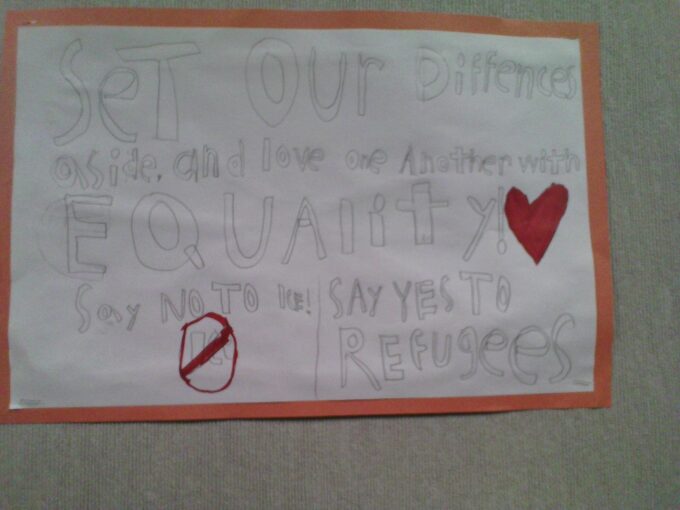 SeT OUr Diffences
aside, and love one Another with
EQUAlity!
Say NO TO ICE!
ICE
SAY YES TO
REfugees